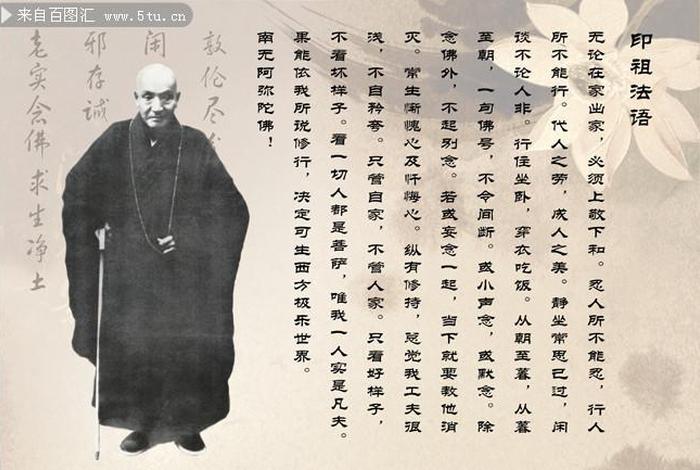 来自百图汇
www.5tu.cn
印祖法语
无论在家出家，必须上敬下和。忍人所不能忍，行人
所不能行。代人之劳，成人之美。静坐常思己过，闲
谈不论人非。行住坐卧，穿衣吃饭。从朝至暮，从暮
至朝，一句佛号，不令间断。或小声念，或默念。除
念佛外，不起别念。若或妄念一起，当下就要教他消
灭。常生惭愧心及忏悔心。纵有修持，总觉我工夫很
浅，不自矜夸。只管自家，不管人家。只看好样子，
不看坏样子。看一切人都是菩萨，唯我一人实是凡夫。
果能依我所说修行，决定可生西方极乐世界。
南无阿弥陀佛！
敦伦尽
闲
邪存诚
老实念佛求生净土